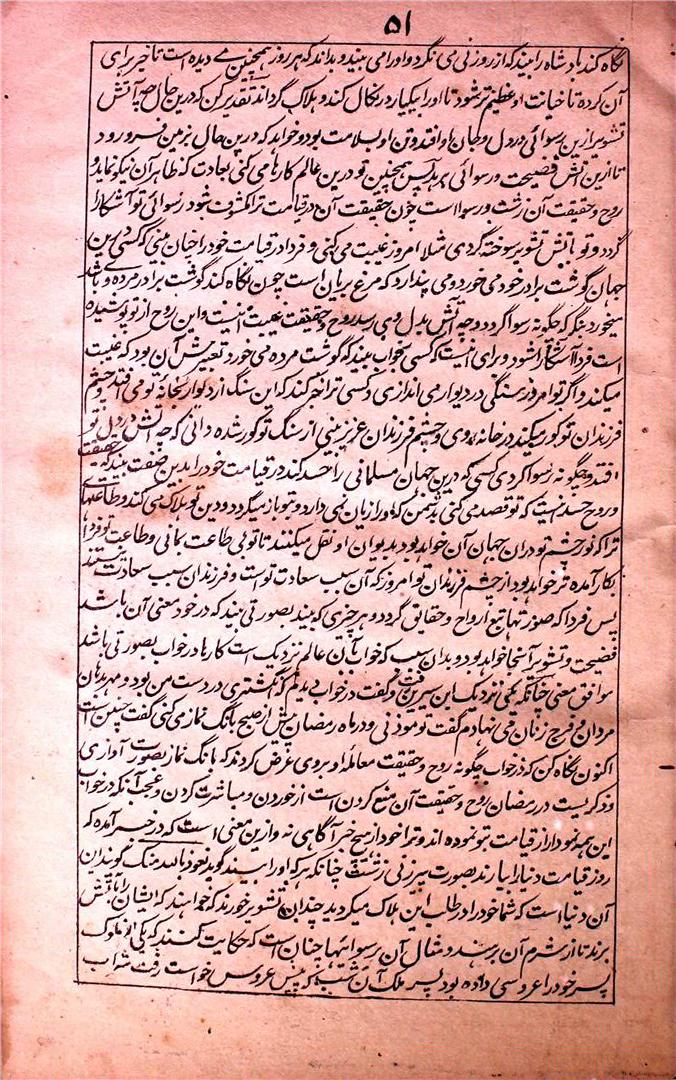 ۵۱
نگاه کند بادشاه را بیند که از روزنی می نگرد و او را می بیند و بداند که هر روز همچنین مے دیده است تا خر برای
آن کرده تا خیانت او عظیم تر شود تا او را بیکبار در نکال کند و هلاک گرداند تقدیر کن که درین حال چه آتش
تشویر ازین رسوائی در دل و جان او افتد و تن او بسلامت بود و خواهد که درین حال بزمین فرو رود
تا ازین آتش فضیحت و رسوائی برهد پس همچنین تو درین عالم کارها می کنی بعادت که ظاهر آن نیکو نماید و
روح و حقیقت آن زشت و رسوا است چون حقیقت آن در قیامت ترا مکشوف شود رسوائی تو آشکارا
گردد و تو بآتش تشویر سوخته گردی مثلا امروز غیبت می کنی و فردا در قیامت خود را چنان بینی که کسی درین
جهان گوشت برادر خود می خورد و می پندارد که مرغ بریان است چون نگاه کند گوشت برادر مرده وے باشد
میخورد بنگر که چگونه رسوا گردد و چه آتش بدل وی رسد روح و حقیقت غیبت اینست و این روح از تو پوشیده
است فردا آشکارا شود و برای اینست که کسی بخواب بیند که گوشت مرده می خورد تعبیرش آن بود که غیبت
میکند و اگر تو امروز سنگی در دیوار می اندازی و کسی ترا خبر کند که این سنگ از دیوار بخانه تو می افتد و چشم
فرزندان تو کور میکند در خانه روی و چشم فرزندان عزیز بینی از سنگ تو کور شده دانی که چه آتش در دل تو
افتد و چگونه رسوا گردی کسی که درین جهان مسلمانی را حسد کند در قیامت خود را بدین صفت بیند که حقیقت
و روح حسد نیست که تو قصد می کنی بدشمن که او را زیان نمی دارد و بتو باز میگردد و دین تو هلاک می کند و طاعتهای
ترا که نور چشم تو در آن جهان آن خواهد بود بدیوان او نقل میکنند تا تو بی طاعت بمانی و طاعت تو فردا
بکار آمده تر خواهد بود از چشم فرزندان تو امروز که آن سبب سعادت تست و فرزندان سبب سعادت نیستند
پس فردا که صورتها تبع ارواح و حقایق گردد و هر چیزی که بیند بصورتی بیند که در خور معنی آن باشد
فضیحت و تشویر آنجا خواهد بود و بدان سبب که خواب بآن عالم نزدیک است کارها در خواب بصورتی باشد
موافق معنی چنانکه یکی نزدیک ابن سیرین رفت و گفت در خواب دیدم که انگشتری در دست من بود و مهر بدهان
مردان و فرج زنان می نهادم گفت تو موذنی و در ماه رمضان پیش از صبح بانگ نماز می کنی گفت چنین است
اکنون نگاه کن که در خواب چگونه روح و حقیقت معامله او بروی عرض کردند که بانگ نماز بصورت آوازی
و ذکریست در رمضان روح و حقیقت آن منع کردن است از خوردن و مباشرت کردن و عجب آنکه در خواب
این همه نمودار از قیامت بتو نموده اند و ترا خود از هیچ خبر آگاهی نه و ازین معنی است که در خبر آمده که
روز قیامت دنیا را بیارند بصورت پیرزنی زشت چنانکه هر که او را ببیند گوید نعوذ بالله منک گویند این
آن دنیا است که شما خود را در طلب این هلاک میکردید چندان تشویر خورند که خواهند که ایشان را بآتش
برند تا از شرم آن برهند و مثال آن رسوائیها چنان است که حکایت کنند که یکی از ملوک
پسر خود را عروسی داده بود پسر ملک آن شب که پیش عروس خواست رفت شراب